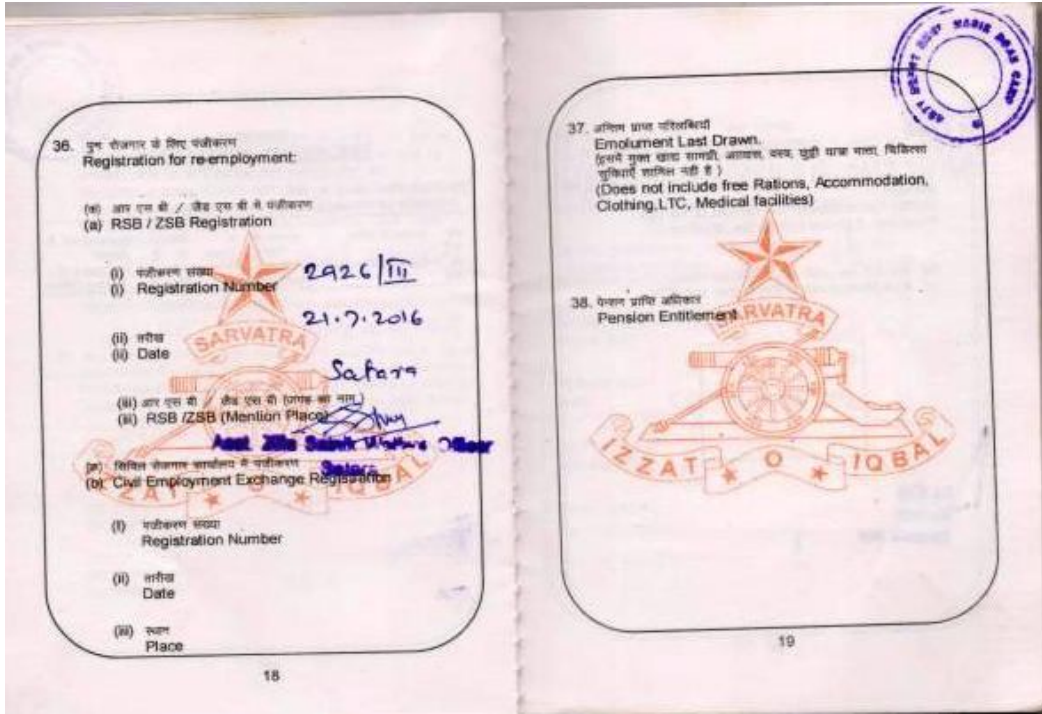 36. पुनः रोजगार के लिए पंजीकरण
Registration for re-employment:
(क) आर एस बी / जैड एस बी में पंजीकरण
(a) RSB / ZSB Registration
(i) पंजीकरण संख्या
(i) Registration Number 2926/III
21.7.2016
(ii) तारीख
(ii) Date
Satara
(iii) आर एस बी / जैड एस बी (जगह का नाम)
(iii) RSB /ZSB (Mention Place)
Asst. Zilla Sainik Welfare Officer
Satara
सिविल रोजगार कार्यालय में पंजीकरण
(b) Civil Employment Exchange Registration
(i) पंजीकरण संख्या
Registration Number
(ii) तारीख
Date
(iii) स्थान
Place
SARVATRA
IZZAT O IQBAL
18
37. अन्तिम प्राप्त परिलब्धियां
Emolument Last Drawn.
(इसमें मुफ्त खाद्य सामग्री, आवास, वस्त्र, छुट्टी यात्रा भत्ता, चिकित्सा
सुविधाएँ शामिल नही है )
(Does not include free Rations, Accommodation,
Clothing,LTC, Medical facilities)
38. पेन्शन प्राप्ति अधिकार
Pension Entitlement
SARVATRA
IZZAT O IQBAL
19